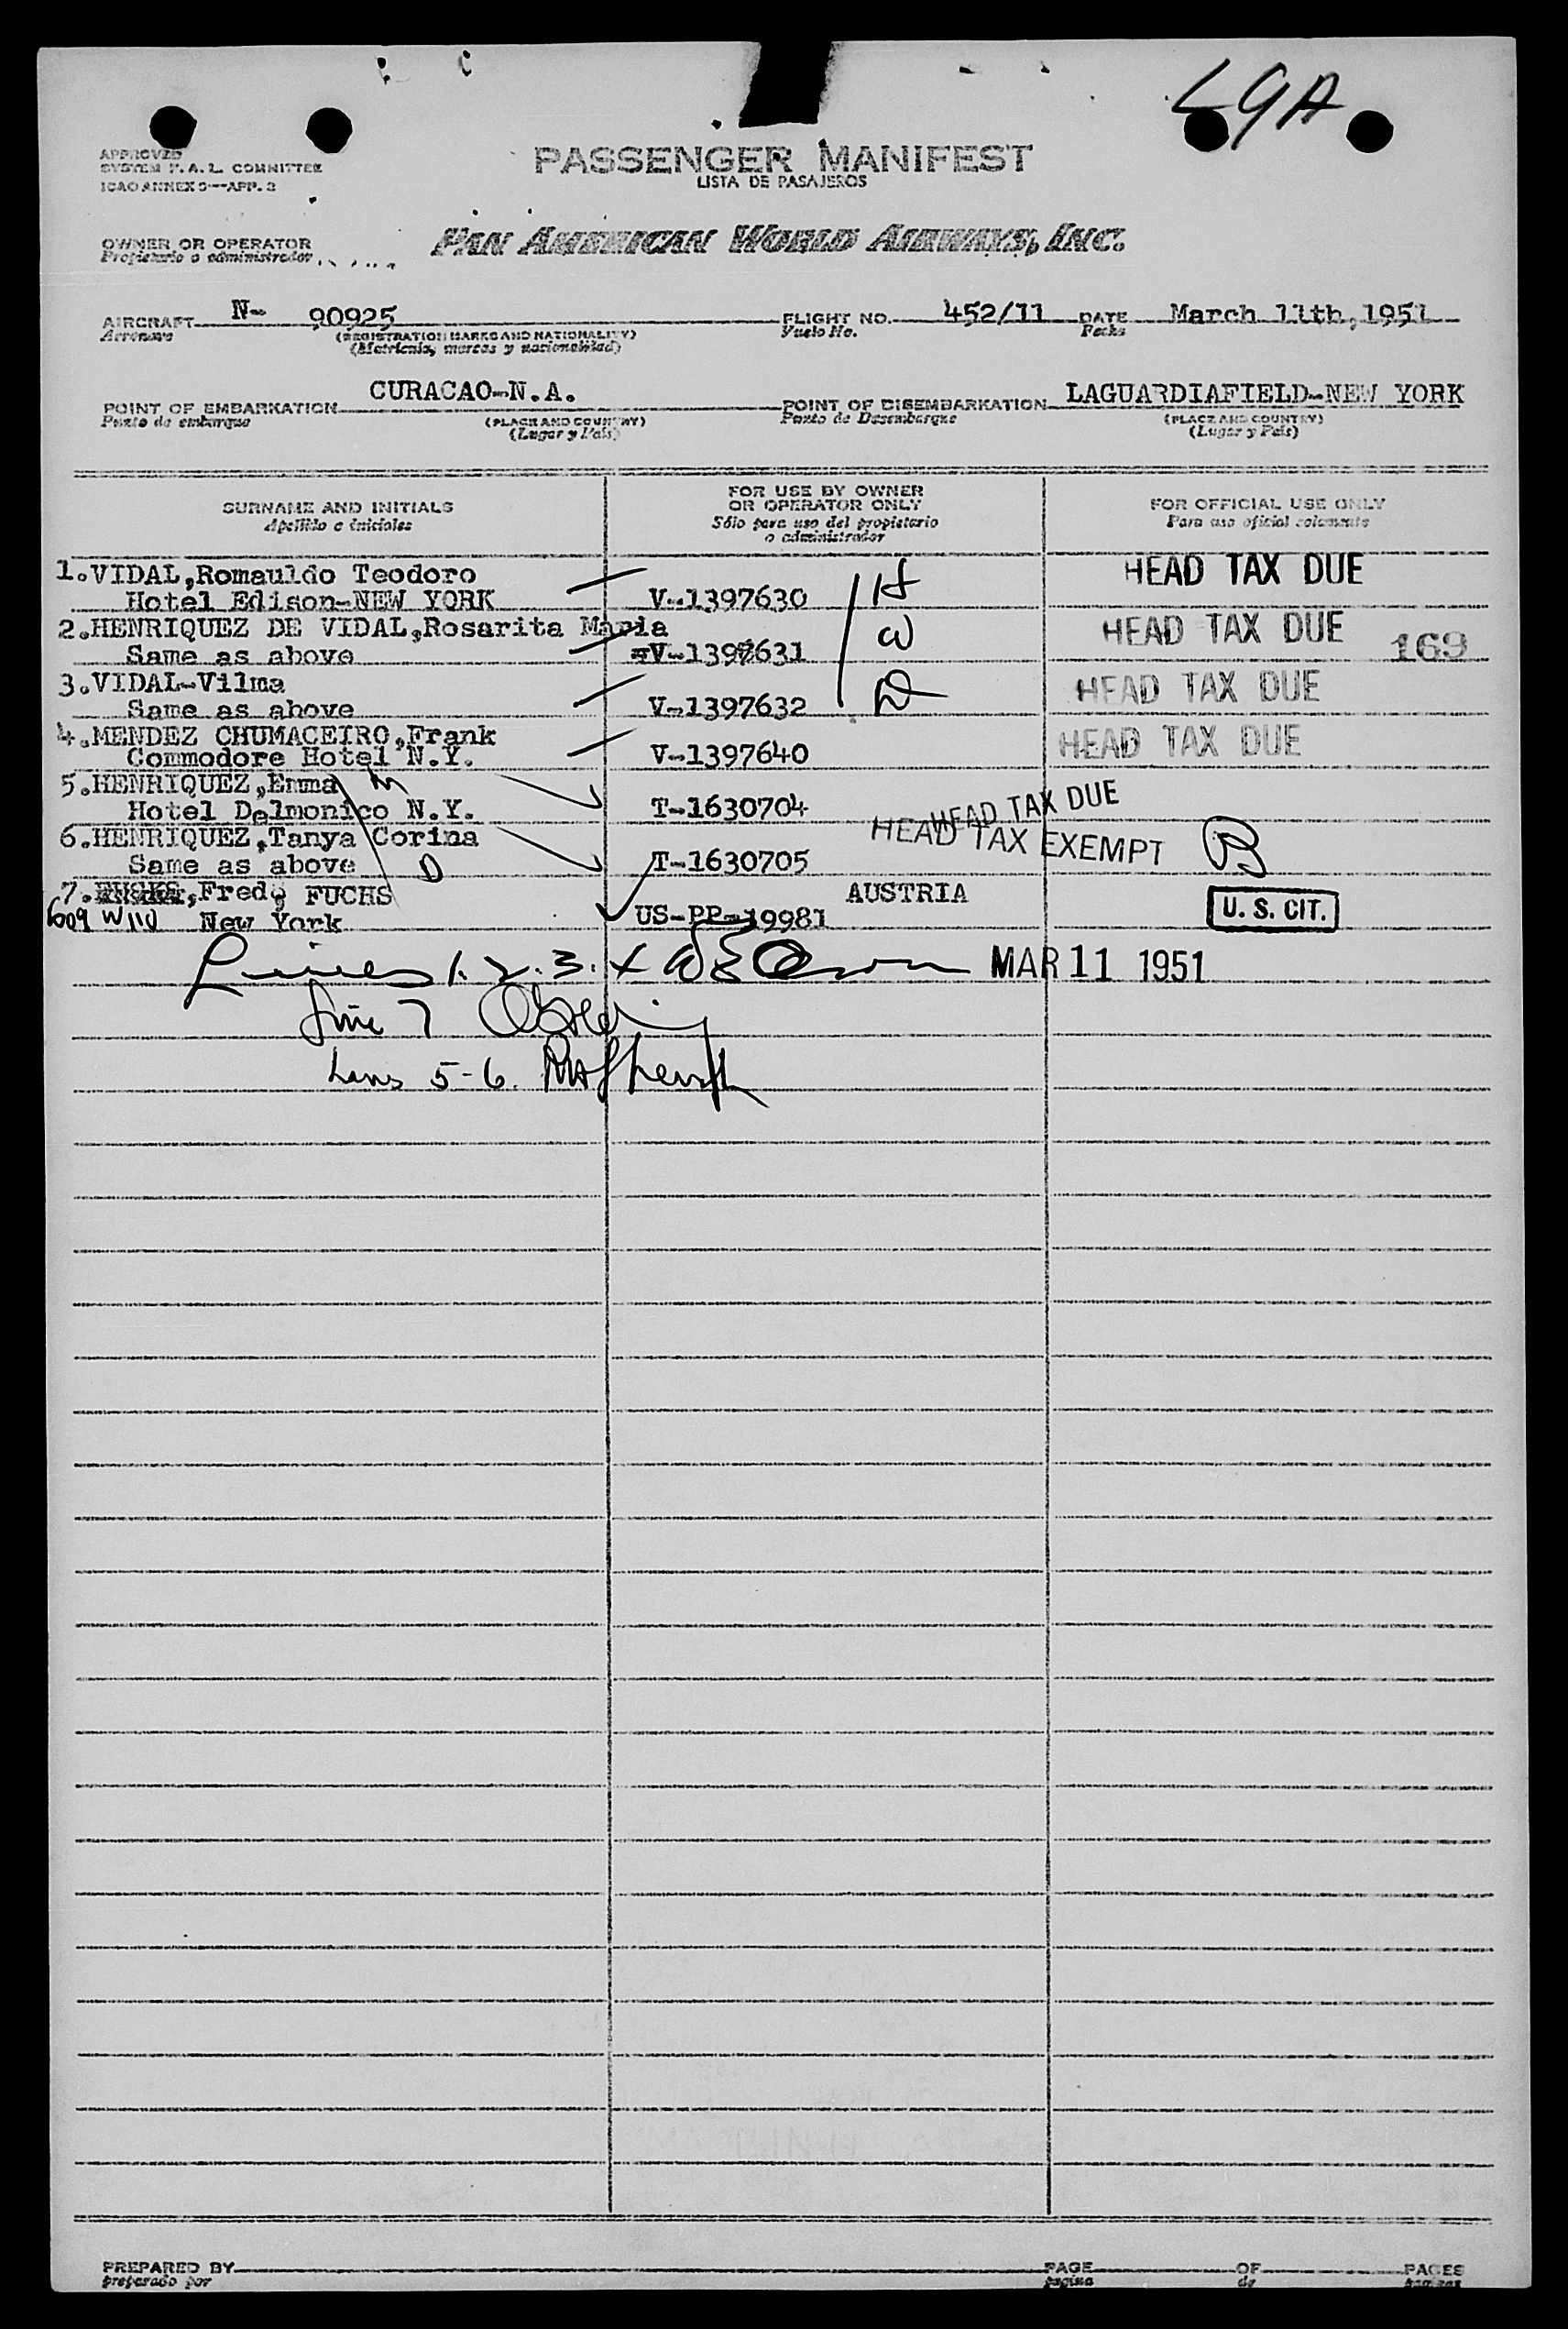 LGA
APPROVED
SYSTEM F.A.L. COMMITTEE
ICAO ANNEX 9—APP. 2
PASSENGER MANIFEST
LISTA DE PASAJEROS
OWNER OR OPERATOR
Propietario o administrador
PAN AMERICAN WORLD AIRWAYS, INC.
AIRCRAFT N- 90925 FLIGHT NO. 452/11 DATE March 11th,1951
Aeronave (REGISTRATION MARKS AND NATIONALITY) Vuelo No. Fecha
(Matricula, marcas y nacionalidad)
POINT OF EMBARKATION CURACAO-N.A. POINT OF DISEMBARKATION LAGUARDIAFIELD-NEW YORK
Punto de embarque (PLACE AND COUNTRY) Punto de Desembarque (PLACE AND COUNTRY)
(Lugar y País) (Lugar y País)
SURNAME AND INITIALS FOR USE BY OWNER OR OPERATOR ONLY FOR OFFICIAL USE ONLY
Apellido e iniciales Sólo para uso del propietario o administrador Para uso oficial solamente
1.VIDAL,Romauldo Teodoro HEAD TAX DUE
Hotel Edison-NEW YORK V-1397630 H
2.HENRIQUEZ DE VIDAL,Rosarita Maria HEAD TAX DUE
Same as above V-1397631 W 169
3.VIDAL-Vilma HEAD TAX DUE
Same as above V-1397632 D
4.MENDEZ CHUMACEIRO,Frank HEAD TAX DUE
Commodore Hotel N.Y. V-1397640
5.HENRIQUEZ,Emma m
Hotel Delmonico N.Y. T-1630704 HEAD TAX DUE
6.HENRIQUEZ,Tanya Corina HEAD TAX EXEMPT
Same as above D T-1630705
7. Fred, FUCHS AUSTRIA
609 W 110 New York US-PP-19981 U. S. CIT.
Lines 1. 2. 3. 4 MAR 11 1951
Line 7
Lines 5-6.
PREPARED BY PAGE OF PAGES
preparado por página de páginas